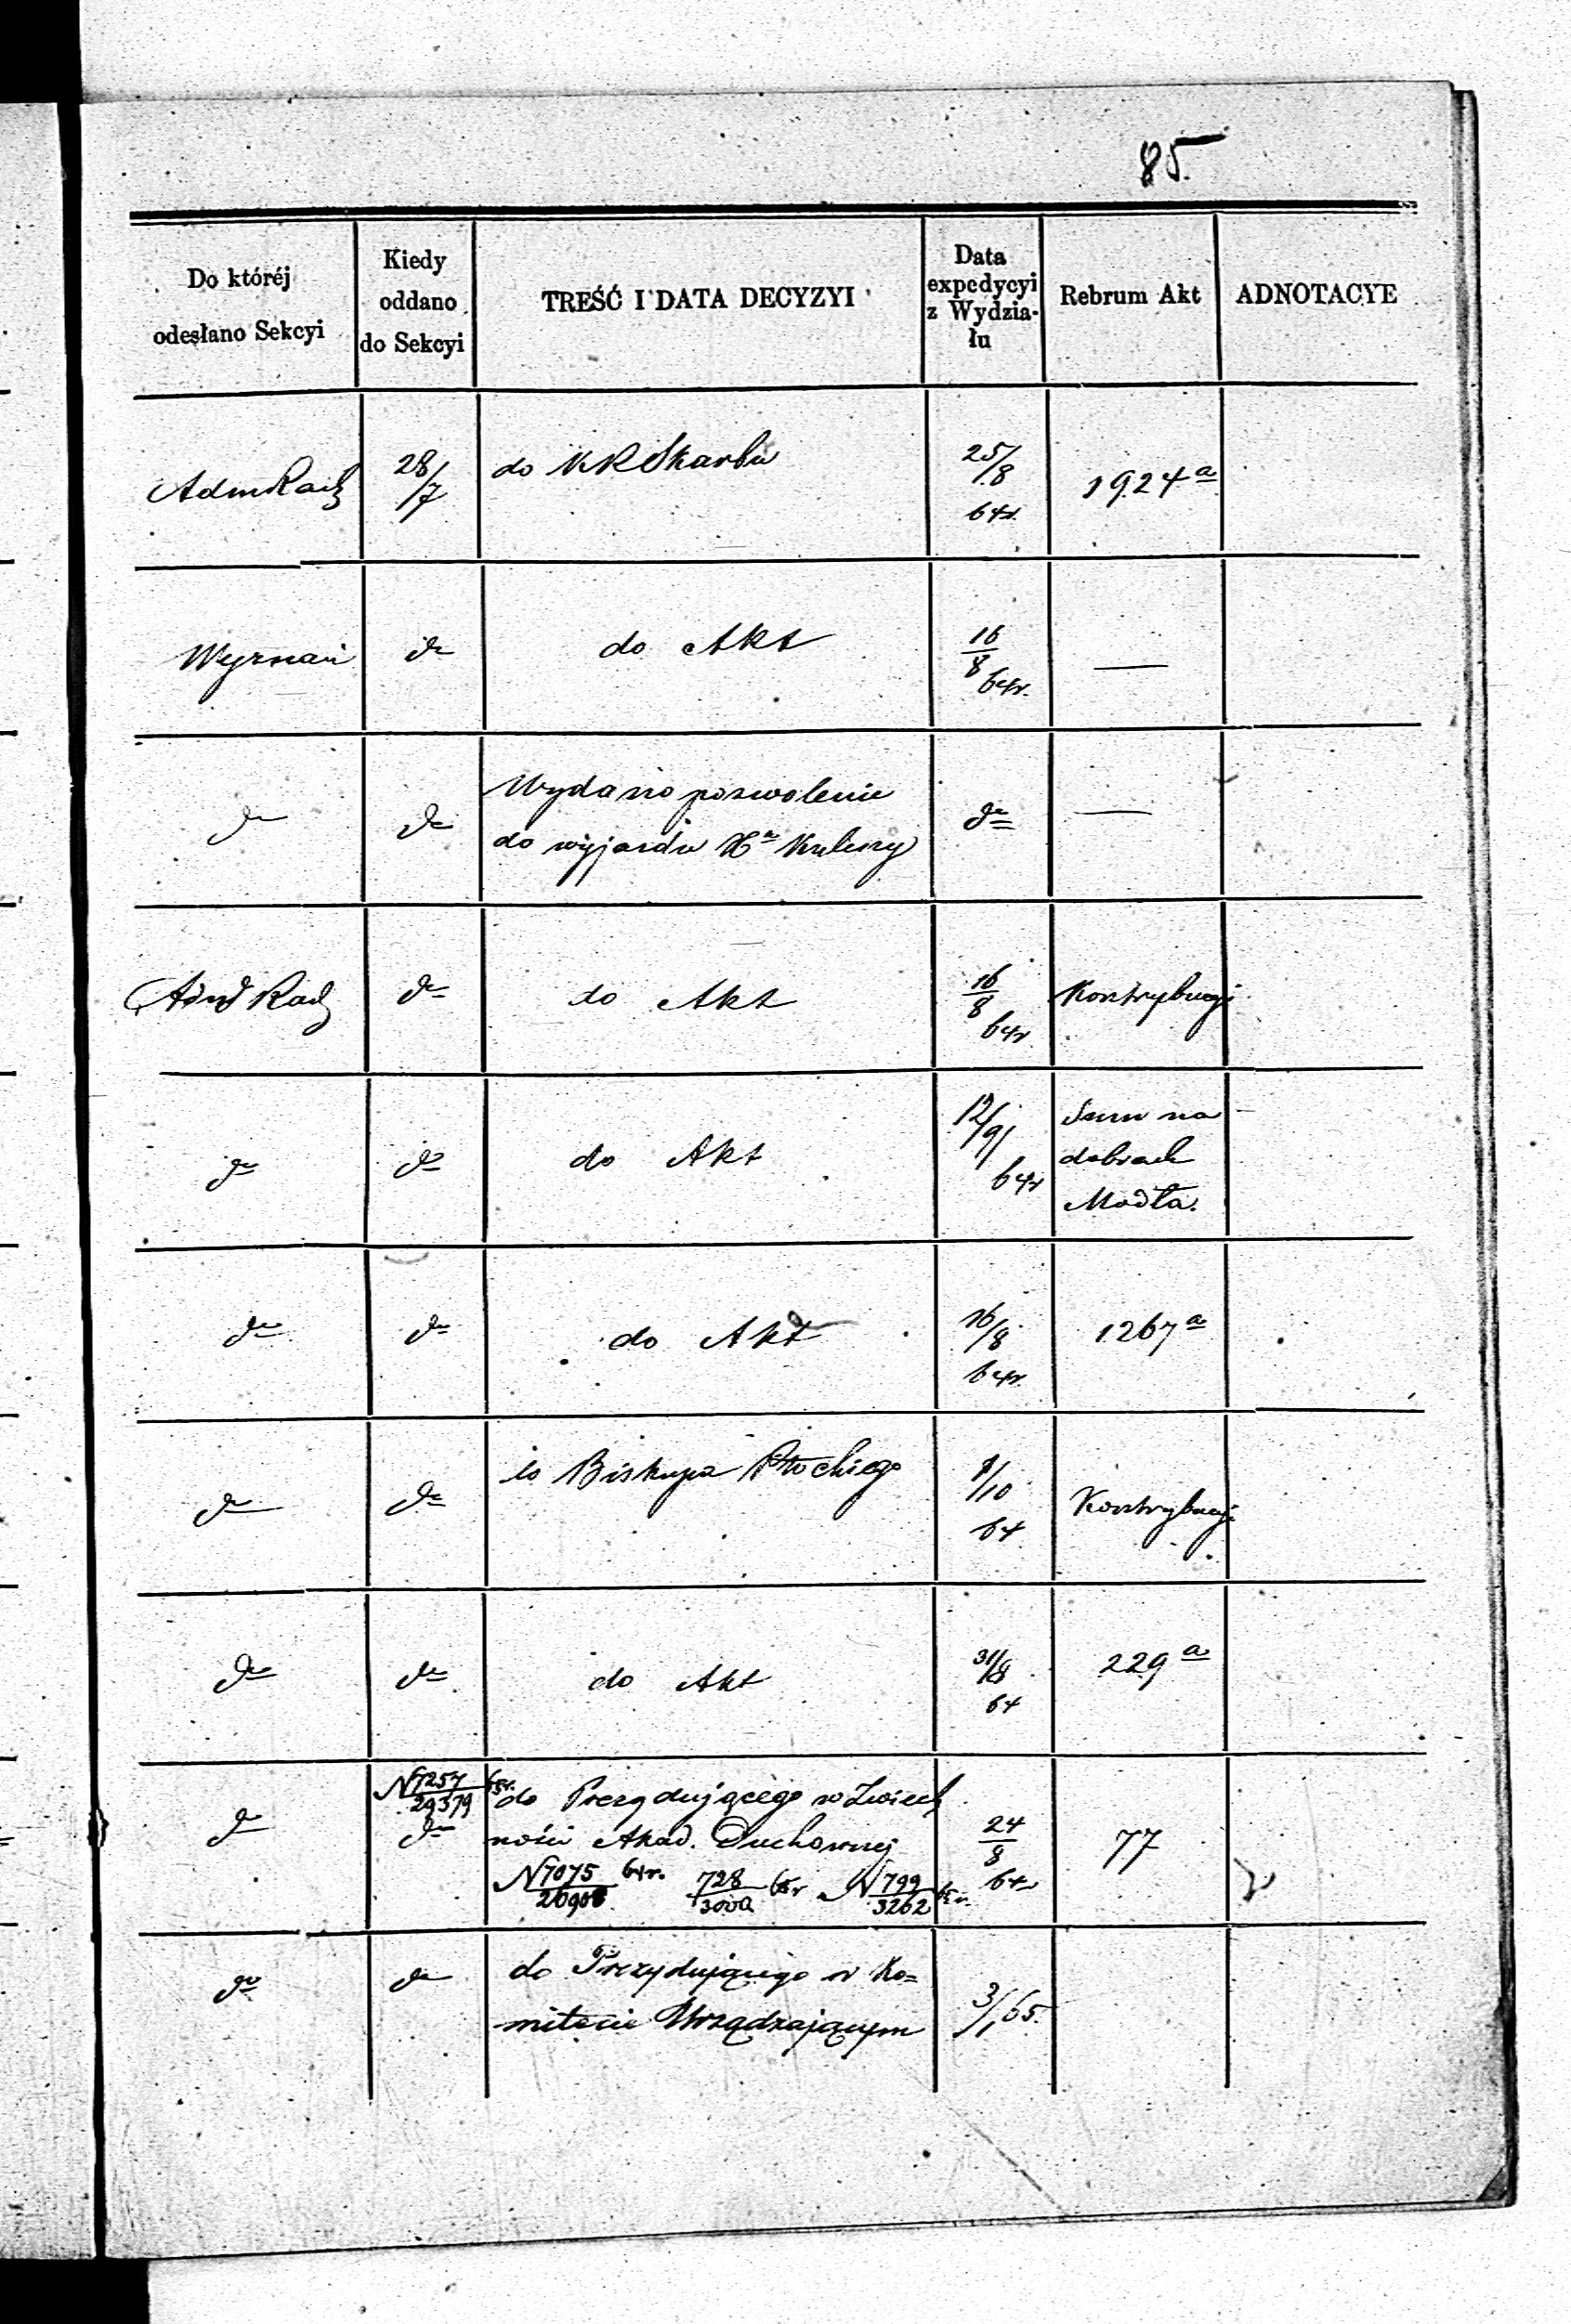 85.
Do któréj
odesłano Sekcyi
Kiedy
oddano
do Sekcyi
TREŚĆ I DATA DECYZYI
Data
expedycyi
z Wydzia-
łu
Rebrum Akt
ADNOTACYE
28/7
do KR Skarbu
25/8
64r.
1924a
Wyznań
do
do Akt
16/8
64r.
—
do
do
Wydano pozwolenie
do wyjazdu Xa
do
—
do
do Akt
16/8
64r
Kontrybucyi
do
do
do Akt
12/9
64r
Sum na
dobrach
Modła.
do
do
do Akt
16/8
64r.
1267a
do
do
do Biskupa Płockiego
1/10
64
Kontrybucyi
do
do
do Akt
31/8
64
229a
do
N 7257/29379 65r.
do
do Prezydującego w Zwierzch
ności Akad. Duchownej
N 7075/26908 64r. 728/ 65r N 799/3262 65r.
24/8
64r
77
do
do
do Prezydującego w Ko=
mitecie Urządzającym
3/1 65.